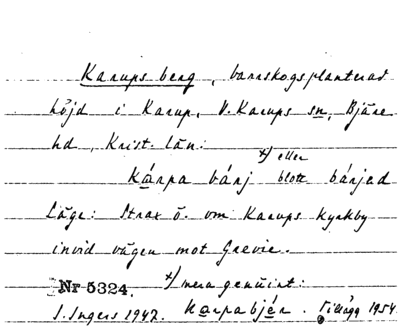 Karups berg, barrskogsplanterad
höjd i Karup, V. Karups sn, Bjäre
hd, Krist. län.
x) eller
Kárpa bárj blott bárjad
Läge: Strax ö. om Karups kyrkby
invid vägen mot Grevie.
Nr 5324. x) mera genuint:
I. Ingers 1942. Karpabjär. Tillägg 1954.